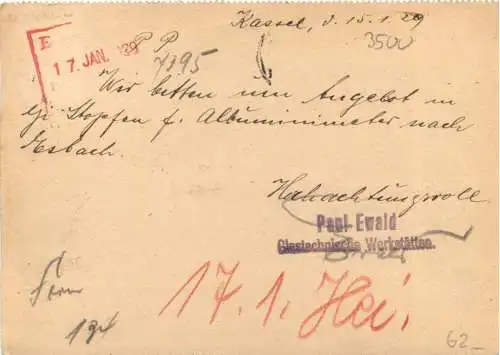 Kassel, d. 15.1.29
E
17. JAN. 29
P P
7195
3500
Wir bitten um Angebot in
Stopfen f. Albuminimeter nach
Esbach.
Hochachtungsvoll
Paul Ewald
Glastechnische Werkstätten.
17.1. Hei.
62-